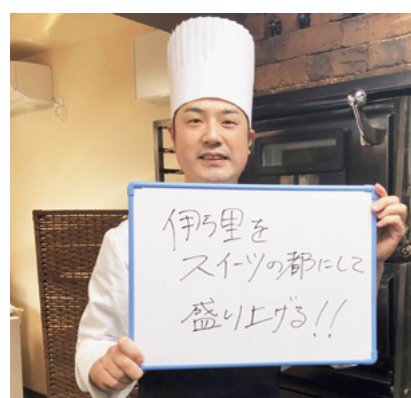 伊万里を
スイーツの都にして
盛り上げる!!